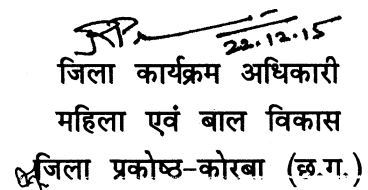 22.12.15
जिला कार्यक्रम अधिकारी
महिला एवं बाल विकास
जिला प्रकोष्ठ-कोरबा (छ.ग.)